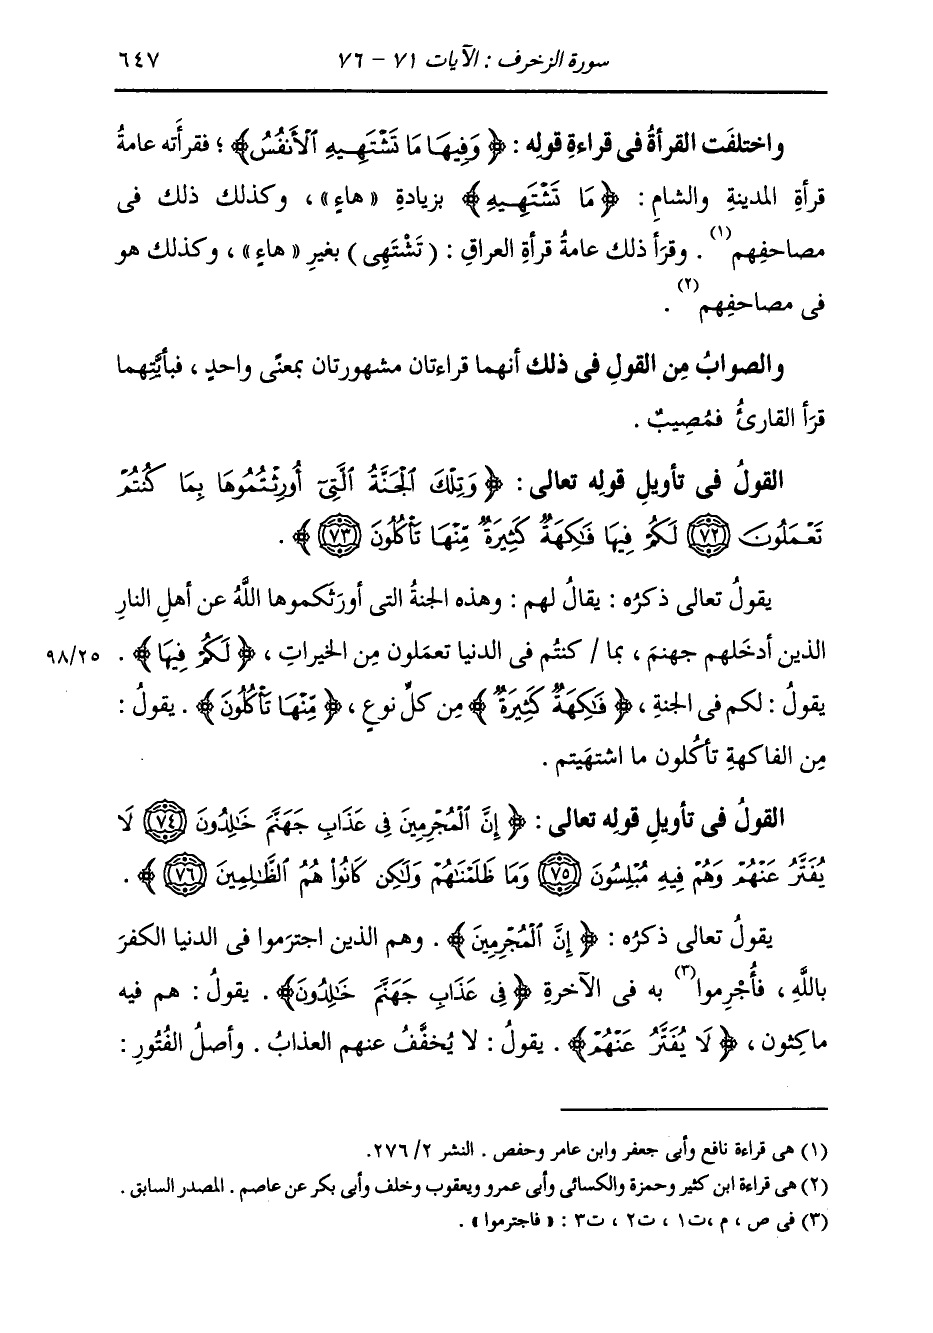 سورة الزخرف : الآيات ٧١ - ٧٦ ٦٤٧
واختلفَت القرأةُ فى قراءةِ قولِه : ﴿ وَفِيهَا مَا تَشْتَهِيهِ ٱلْأَنفُسُ﴾ ؛ فقرأَته عامةُ
قرأةِ المدينةِ والشامِ : ﴿مَا تَشْتَهِيهِ﴾ بزيادةِ «هاءٍ» ، وكذلك ذلك فى
مصاحفِهم(١) . وقرَأ ذلك عامةُ قرأةِ العراقِ : (تَشْتَهِى) بغيرِ «هاءٍ» ، وكذلك هو
فى مصاحفِهم(٢) .
والصوابُ مِن القولِ فى ذلك أنهما قراءتان مشهورتان بمعنًى واحدٍ ، فبأيَّتِهما
قرَأ القارئُ فمُصِيبٌ .
القولُ فى تأويلِ قولِه تعالى : ﴿ وَتِلْكَ ٱلْجَنَّةُ ٱلَّتِىٓ أُورِثْتُمُوهَا بِمَا كُنتُمْ
تَعْمَلُونَ ٧٢ لَكُمْ فِيهَا فَٰكِهَةٌ كَثِيرَةٌ مِّنْهَا تَأْكُلُونَ ٧٣ ﴾ .
يقولُ تعالى ذكرُه : يقالُ لهم : وهذه الجنةُ التى أورَثكموها اللَّهُ عن أهلِ النارِ
الذين أدخَلهم جهنمَ ، بما / كنتُم فى الدنيا تعمَلون مِن الخيراتِ ، ﴿لَكُمْ فِيهَا﴾ . ٩٨/٢٥
يقولُ : لكم فى الجنةِ ، ﴿ فَٰكِهَةٌ كَثِيرَةٌ ﴾ مِن كلِّ نوعٍ ، ﴿ مِّنْهَا تَأْكُلُونَ﴾ . يقولُ :
مِن الفاكهةِ تأكُلون ما اشتهَيتم .
القولُ فى تأويلِ قولِه تعالى : ﴿ إِنَّ ٱلْمُجْرِمِينَ فِى عَذَابِ جَهَنَّمَ خَٰلِدُونَ ٧٤ لَا
يُفَتَّرُ عَنْهُمْ وَهُمْ فِيهِ مُبْلِسُونَ ٧٥ وَمَا ظَلَمْنَٰهُمْ وَلَٰكِن كَانُوا۟ هُمُ ٱلظَّٰلِمِينَ ٧٦ ﴾ .
يقولُ تعالى ذكرُه : ﴿ إِنَّ ٱلْمُجْرِمِينَ ﴾ . وهم الذين اجترَموا فى الدنيا الكفرَ
باللَّهِ ، فأُجْرِموا(٣) به فى الآخرةِ ﴿ فِى عَذَابِ جَهَنَّمَ خَٰلِدُونَ﴾ . يقولُ : هم فيه
ماكِثون ، ﴿ لَا يُفَتَّرُ عَنْهُمْ﴾ . يقولُ : لا يُخفَّفُ عنهم العذابُ . وأصلُ الفُتُورِ :
(١) هى قراءة نافع وأبى جعفر وابن عامر وحفص . النشر ٢/ ٢٧٦.
(٢) هى قراءة ابن كثير وحمزة والكسائى وأبى عمرو ويعقوب وخلف وأبى بكر عن عاصم . المصدر السابق .
(٣) فى ص ، م ،ت١ ، ت٢ ، ت٣ : « فاجترموا » .